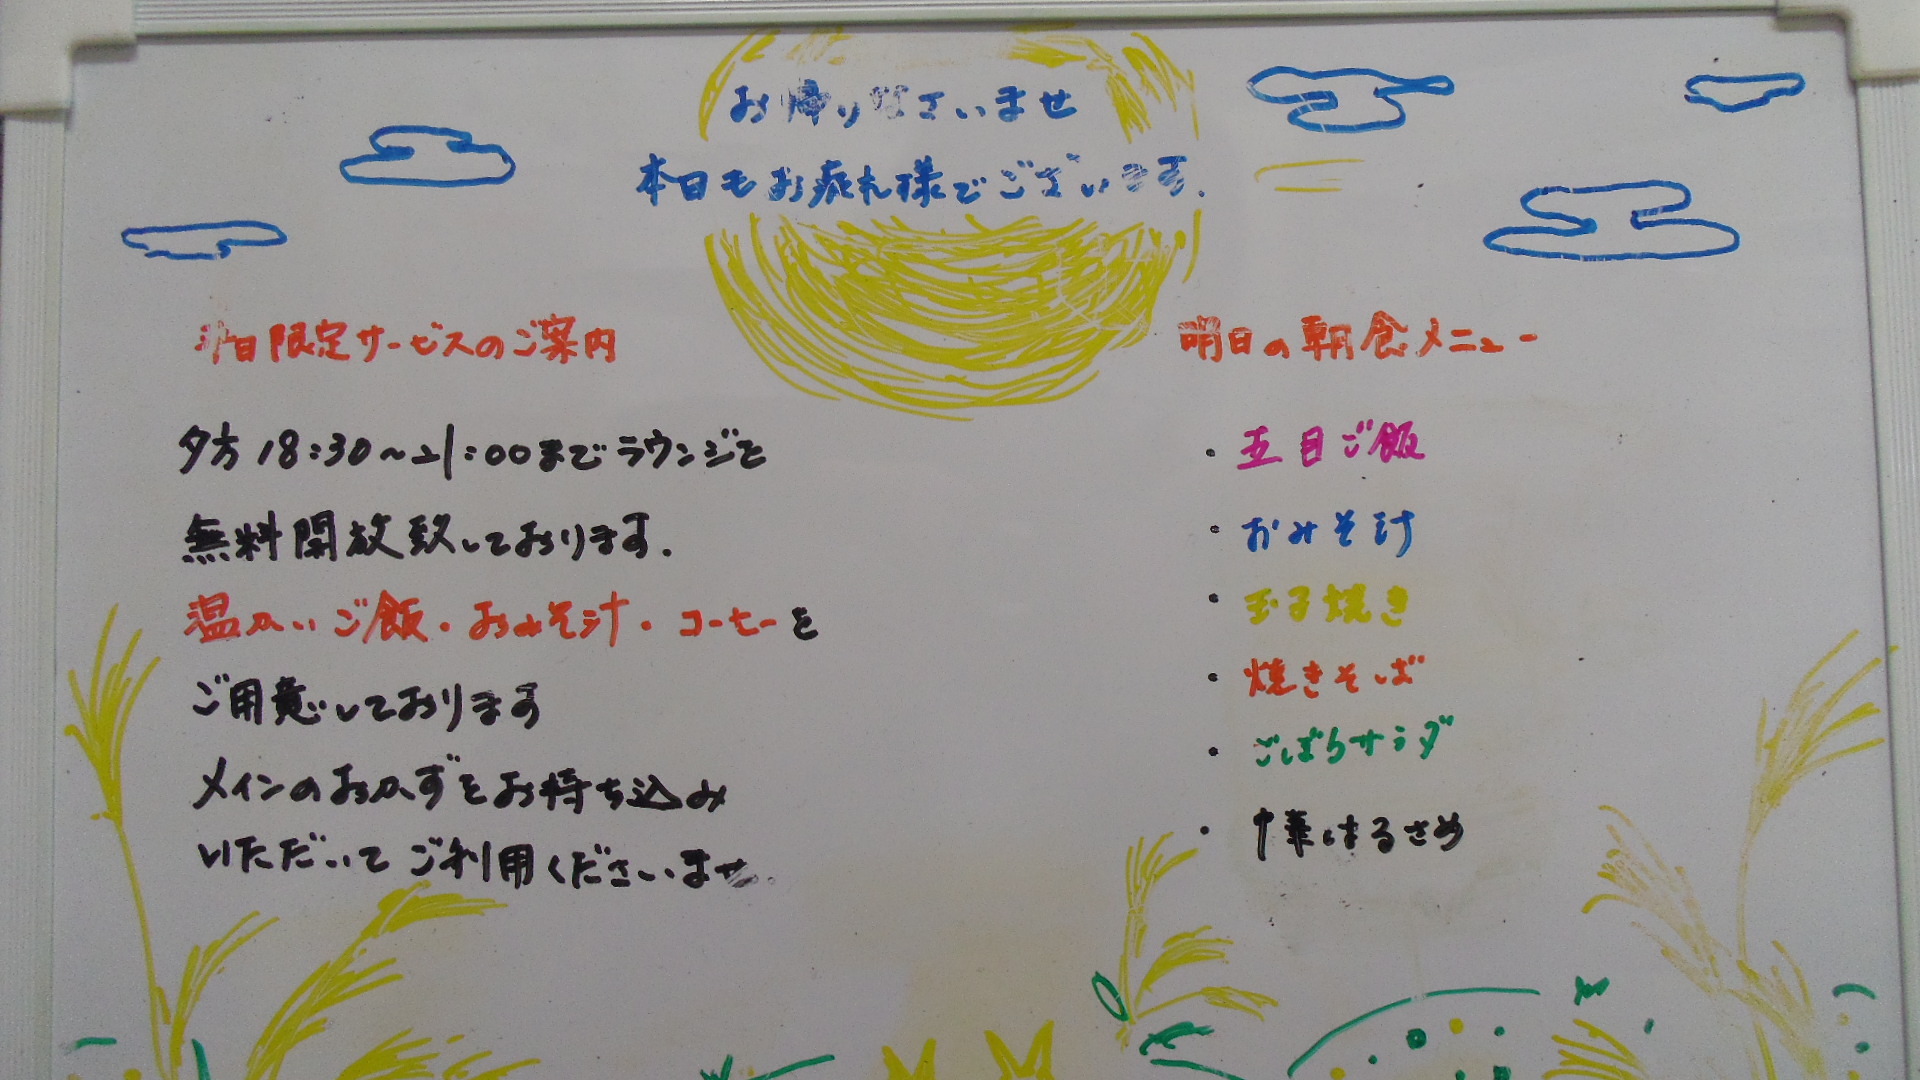 お帰りなさいませ
本日もお疲れ様でございます.
平日限定サービスのご案内
夕方18:30~21:00までラウンジを
無料開放致しております.
温かいご飯・おみそ汁・コーヒーを
ご用意しております
メインのおかずをお持ち込み
いただいてご利用くださいませ.
明日の朝食メニュー
・五目ご飯
・おみそ汁
・玉子焼き
・焼きそば
・ごぼうサラダ
・中華はるさめ